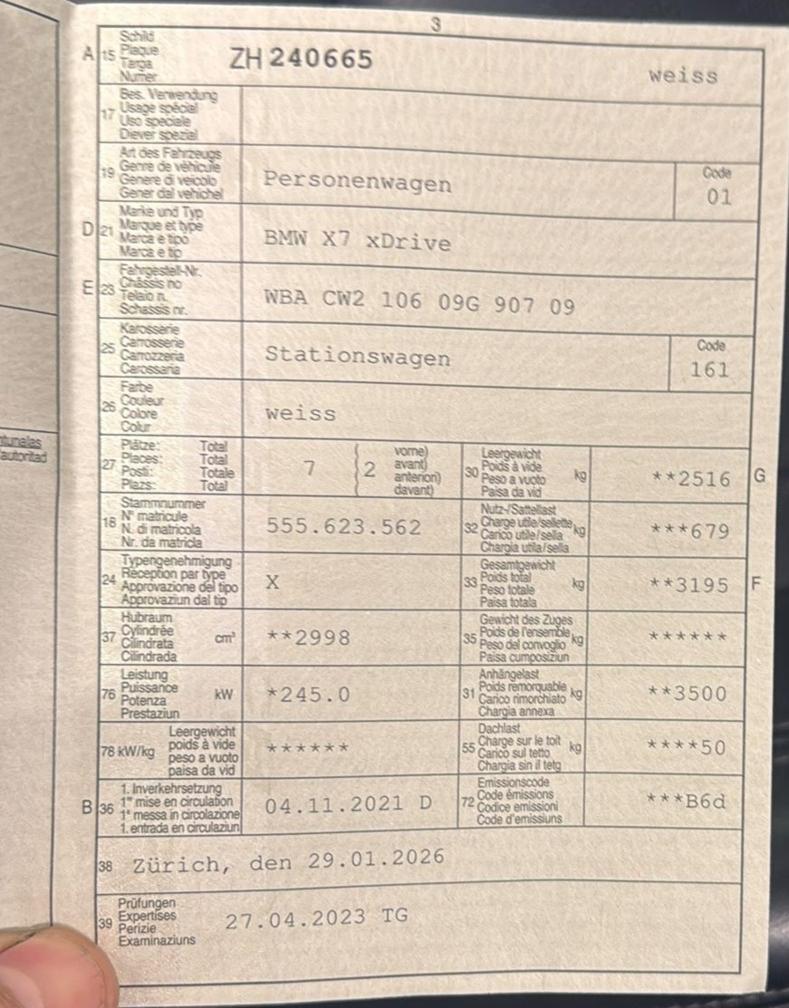 3
A 15 Schild
Plaque
Targa
Numer
ZH 240665 weiss
17 Bes. Verwendung
Usage spécial
Uso speciale
Diever spezial
19 Art des Fahrzeugs
Genre de véhicule
Genere di veicolo
Gener dal vehichel
Personenwagen
Code
01
D 21 Marke und Typ
Marque et type
Marca e tipo
Marca e tip
BMW X7 xDrive
E 23 Fahrgestell-Nr.
Châssis no
Telaio n.
Schassis nr.
WBA CW2 106 09G 907 09
25 Karosserie
Carrosserie
Carrozzeria
Carossaria
Stationswagen
Code
161
26 Farbe
Couleur
Colore
Colur
weiss
ntunalas
autoritad
27 Plätze: Total
Places: Total
Posti: Totale
Plazs: Total
7
2 vorne)
avant)
anteriori)
davant)
30 Leergewicht
Poids à vide
Peso a vuoto
Paisa da vid
kg
**2516 G
18 Stammnummer
N° matricule
N. di matricola
Nr. da matricla
555.623.562
32 Nutz-/Sattellast
Charge utile/sellette
Carico utile/sella
Chargia utila/sella
kg
***679
24 Typengenehmigung
Réception par type
Approvazione del tipo
Approvaziun dal tip
X
33 Gesamtgewicht
Poids total
Peso totale
Paisa totala
kg
**3195 F
37 Hubraum
Cylindrée
Cilindrata
Cilindrada
cm³
**2998
35 Gewicht des Zuges
Poids de l'ensemble
Peso del convoglio
Paisa cumposiziun
kg
******
76 Leistung
Puissance
Potenza
Prestaziun
kW
*245.0
31 Anhängelast
Poids remorquable
Carico rimorchiato
Chargia annexa
kg
**3500
78 kW/kg Leergewicht
poids à vide
peso a vuoto
paisa da vid
******
55 Dachlast
Charge sur le toit
Carico sul tetto
Chargia sin il tetg
kg
****50
B 36 1. Inverkehrsetzung
1re mise en circulation
1a messa in circolazione
1. entrada en circulaziun
04.11.2021 D
72 Emissionscode
Code émissions
Codice emissioni
Code d'emissiuns
***B6d
38 Zürich, den 29.01.2026
39 Prüfungen
Expertises
Perizie
Examinaziuns
27.04.2023 TG